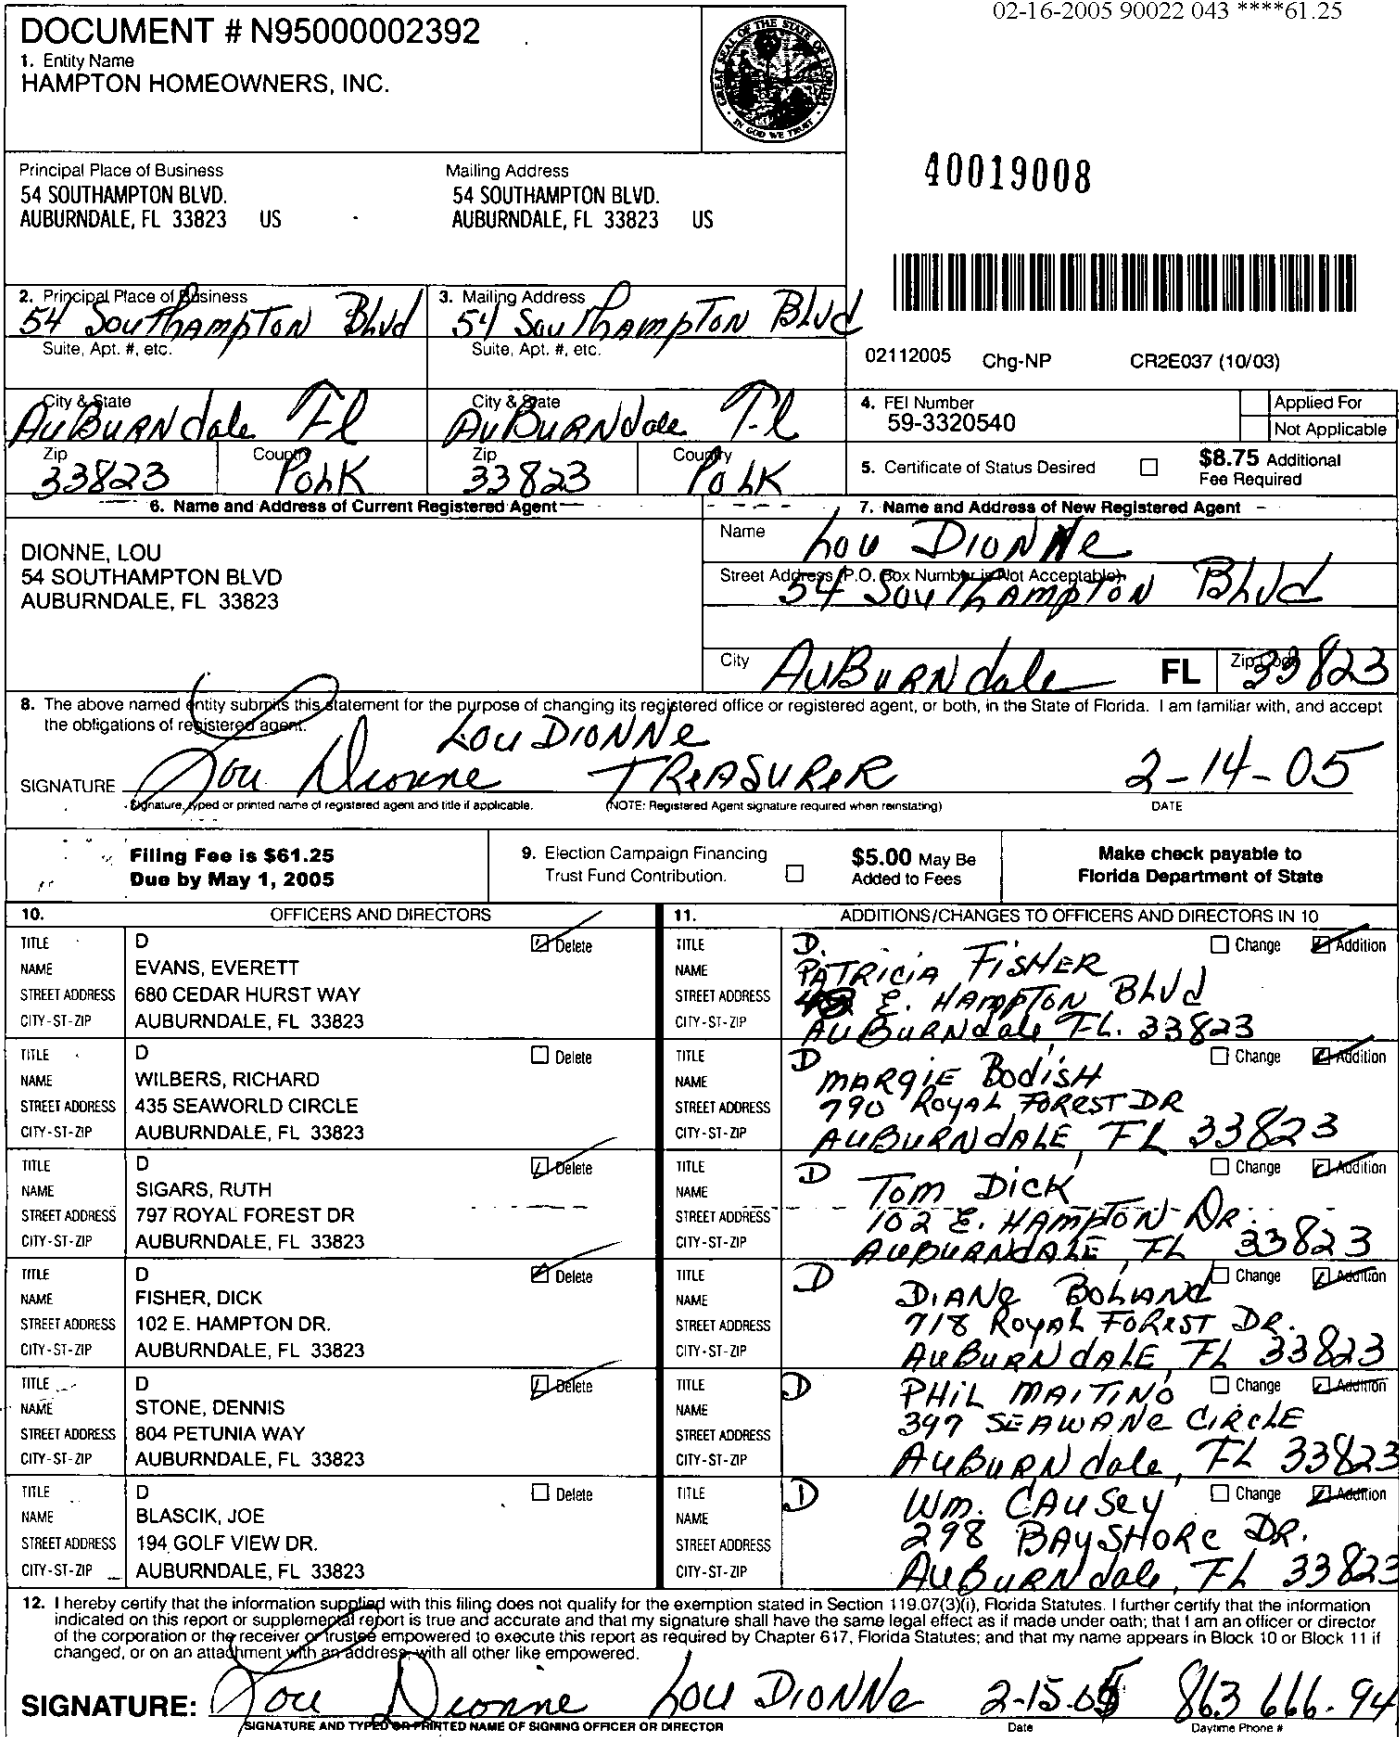 02-16-2005 90022 043 ****61.25
DOCUMENT # N95000002392
1. Entity Name
HAMPTON HOMEOWNERS, INC.
GREAT SEAL OF THE STATE OF FLORIDA
IN GOD WE TRUST
40019008
Principal Place of Business
54 SOUTHAMPTON BLVD.
AUBURNDALE, FL 33823 US
Mailing Address
54 SOUTHAMPTON BLVD.
AUBURNDALE, FL 33823 US
2. Principal Place of Business
54 SouThampTon Blvd
Suite, Apt. #, etc.
City & State
AuBURNdale Fl
Zip
33823
Country
PoLK
3. Mailing Address
54 SouThAmpTon BLvd
Suite, Apt. #, etc.
City & State
AuBURNdale Fl
Zip
33823
Country
PoLK
02112005 Chg-NP CR2E037 (10/03)
4. FEI Number
59-3320540
Applied For
Not Applicable
5. Certificate of Status Desired
$8.75 Additional
Fee Required
6. Name and Address of Current Registered Agent
DIONNE, LOU
54 SOUTHAMPTON BLVD
AUBURNDALE, FL 33823
7. Name and Address of New Registered Agent
Name
Lou DIONNe
Street Address (P.O. Box Number is Not Acceptable)
54 SouThAmpTon BLvd
City
AuBURNdale FL
Zip Code
33823
8. The above named entity submits this statement for the purpose of changing its registered office or registered agent, or both, in the State of Florida. I am familiar with, and accept
the obligations of registered agent.
Lou DIONNe
SIGNATURE Lou Dionne TReASUReR 2-14-05
Signature, typed or printed name of registered agent and title if applicable.
(NOTE: Registered Agent signature required when reinstating)
DATE
Filing Fee is $61.25
Due by May 1, 2005
9. Election Campaign Financing
Trust Fund Contribution.
$5.00 May Be
Added to Fees
Make check payable to
Florida Department of State
10. OFFICERS AND DIRECTORS
TITLE D Delete
NAME EVANS, EVERETT
STREET ADDRESS 680 CEDAR HURST WAY
CITY-ST-ZIP AUBURNDALE, FL 33823
TITLE D Delete
NAME WILBERS, RICHARD
STREET ADDRESS 435 SEAWORLD CIRCLE
CITY-ST-ZIP AUBURNDALE, FL 33823
TITLE D Delete
NAME SIGARS, RUTH
STREET ADDRESS 797 ROYAL FOREST DR
CITY-ST-ZIP AUBURNDALE, FL 33823
TITLE D Delete
NAME FISHER, DICK
STREET ADDRESS 102 E. HAMPTON DR.
CITY-ST-ZIP AUBURNDALE, FL 33823
TITLE D Delete
NAME STONE, DENNIS
STREET ADDRESS 804 PETUNIA WAY
CITY-ST-ZIP AUBURNDALE, FL 33823
TITLE D Delete
NAME BLASCIK, JOE
STREET ADDRESS 194 GOLF VIEW DR.
CITY-ST-ZIP AUBURNDALE, FL 33823
11. ADDITIONS/CHANGES TO OFFICERS AND DIRECTORS IN 10
TITLE D. Change Addition
NAME PATRICIA FISHER
STREET ADDRESS E. HAMPTON BLvd
CITY-ST-ZIP AuBURNdale, FL. 33823
TITLE D Change Addition
NAME MARGIE BODISH
STREET ADDRESS 790 ROYAL FOREST DR
CITY-ST-ZIP AUBURNdALE, FL 33823
TITLE D Change Addition
NAME TOM DICK
STREET ADDRESS 102 E. HAMPTON DR.
CITY-ST-ZIP AUBURNdALE, FL 33823
TITLE D Change Addition
NAME DIANe BOLAND
STREET ADDRESS 718 ROYAL FOReST DR.
CITY-ST-ZIP AuBURNdALE, FL 33823
TITLE D Change Addition
NAME PHIL MAITINO
STREET ADDRESS 397 SEAWANe CIRCLE
CITY-ST-ZIP AuBURNdale, FL 33823
TITLE D Change Addition
NAME Wm. CAUSEY
STREET ADDRESS 298 BAYSHORe DR.
CITY-ST-ZIP AuBURNdale, FL 33823
12. I hereby certify that the information supplied with this filing does not qualify for the exemption stated in Section 119.07(3)(i), Florida Statutes. I further certify that the information
indicated on this report or supplemental report is true and accurate and that my signature shall have the same legal effect as if made under oath; that I am an officer or director
of the corporation or the receiver or trustee empowered to execute this report as required by Chapter 617, Florida Statutes; and that my name appears in Block 10 or Block 11 if
changed, or on an attachment with an address, with all other like empowered.
SIGNATURE: Lou Dionne Lou DIONNe 2-15-05 863 666-94
SIGNATURE AND TYPED OR PRINTED NAME OF SIGNING OFFICER OR DIRECTOR
Date
Daytime Phone #